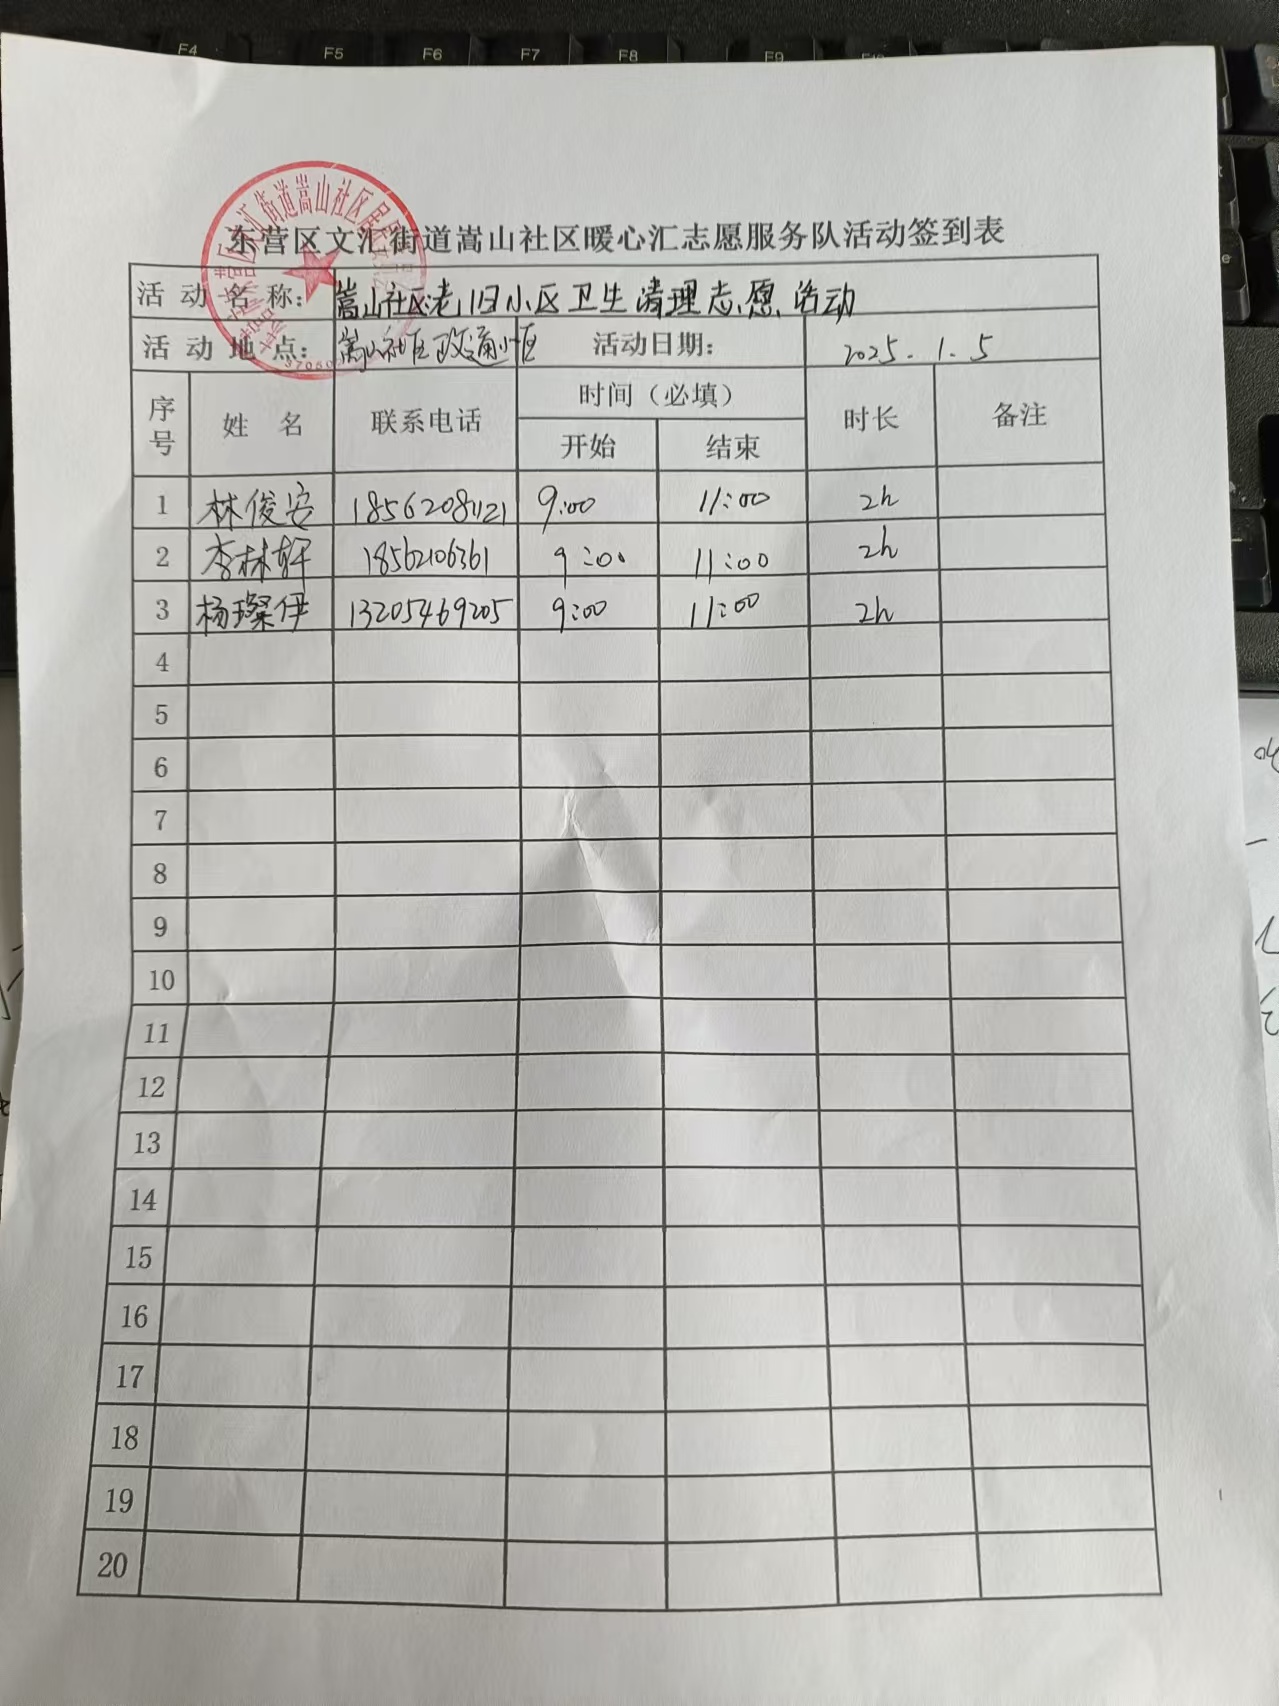 F4 F5 F6 F7 F8 F9
东营区文汇街道嵩山社区暖心汇志愿服务队活动签到表
活动名称: 嵩山社区老旧小区卫生清理志愿活动
活动地点: 嵩山社区政通小区 活动日期: 2025.1.5
序号 姓名 联系电话 时间（必填） 时长 备注
开始 结束
1 林俊安 18562081121 9:00 11:00 2h
2 李林轩 18562106361 9:00 11:00 2h
3 杨璨伊 13205469205 9:00 11:00 2h
4
5
6
7
8
9
10
11
12
13
14
15
16
17
18
19
20